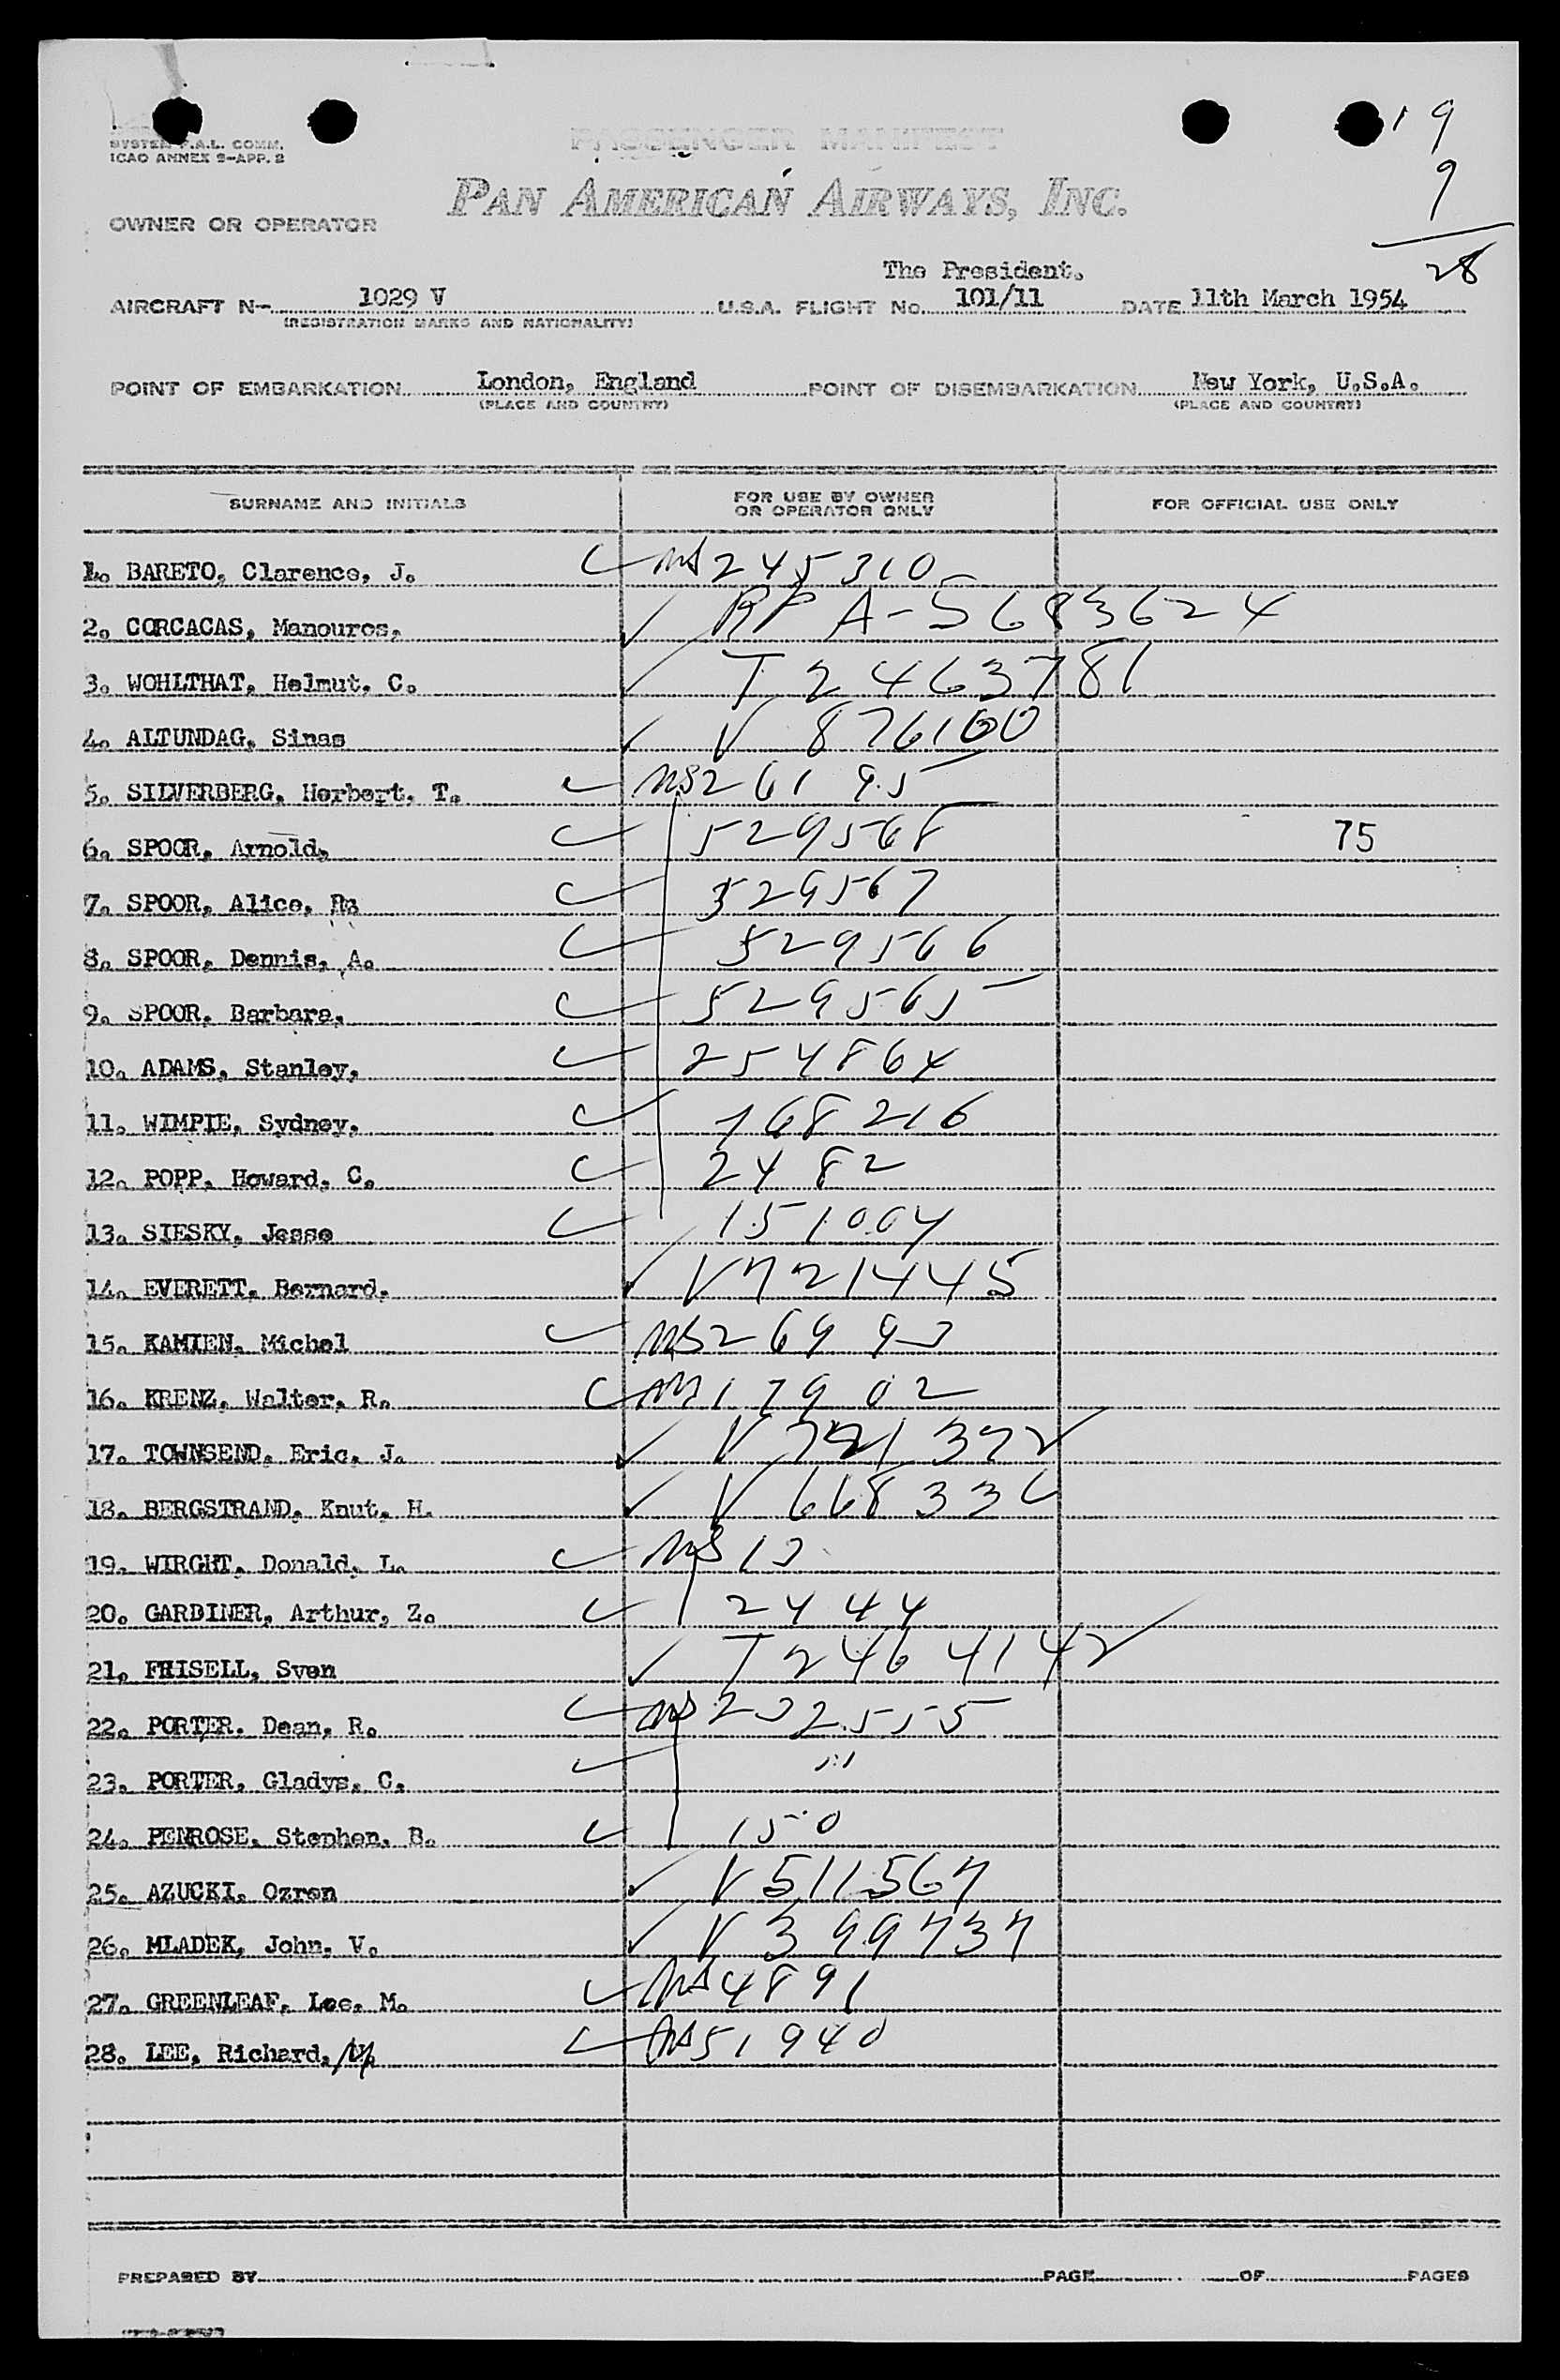 19
9
28
SYSTEM F.A.L. COMM.
ICAO ANNEX 9-APP. 2
PASSENGER MANIFEST
PAN AMERICAN AIRWAYS, INC.
OWNER OR OPERATOR
The President.
AIRCRAFT N- 1029 V U.S.A. FLIGHT No. 101/11 DATE 11th March 1954
(REGISTRATION MARKS AND NATIONALITY)
POINT OF EMBARKATION London, England POINT OF DISEMBARKATION New York, U.S.A.
(PLACE AND COUNTRY) (PLACE AND COUNTRY)
SURNAME AND INITIALS FOR USE BY OWNER OR OPERATOR ONLY FOR OFFICIAL USE ONLY
1. BARETO, Clarence, J. 245310
2. CORCACAS, Manouros. RP A-5683624
3. WOHLTHAT, Helmut. C. T 2463781
4. ALTUNDAG, Sinas V 876100
5. SILVERBERG, Herbert. T. 26195
6. SPOOR, Arnold, 529568 75
7. SPOOR, Alice, 529567
8. SPOOR, Dennis, A. 529566
9. SPOOR, Barbara, 529565
10. ADAMS, Stanley, 254864
11. WIMPIE, Sydney, 168216
12. POPP, Howard, C. 2482
13. SIESKY, Jesse 151004
14. EVERETT, Bernard. V721445
15. KAMIEN, Michel
16. KRENZ, Walter, R. 17902
17. TOWNSEND, Eric, J.
18. BERGSTRAND, Knut, H.
19. WIRGHT, Donald, L.
20. GARDINER, Arthur, Z. 2444
21. FRISELL, Sven T 2464142
22. PORTER, Dean, R.
23. PORTER, Gladys, C. "
24. PENROSE, Stephen, B. 150
25. AZUCKI, Ozren V 511567
26. MLADEK, John, V. V 399737
27. GREENLEAF, Lee, M. 4891
28. LEE, Richard, 51940
PREPARED BY PAGE OF PAGES